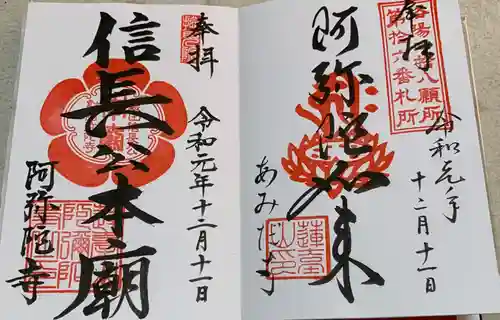 奉拝
第拾六番札所
阿弥陀如来
令和元年
十二月十一日
あみだ寺
蓮台山印
奉拝
信長公本廟
令和元年十二月十一日
阿弥陀寺